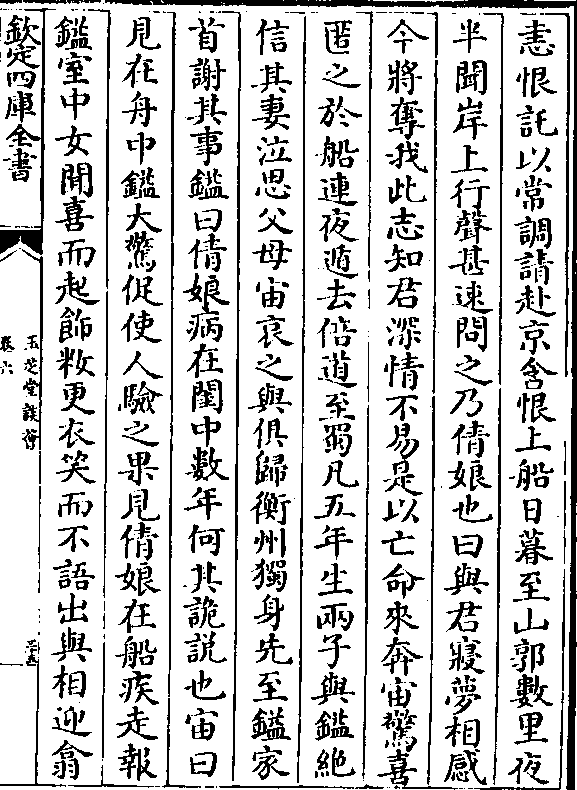 恚恨託以常調請赴京含恨上船日暮至山郭數里夜
半聞岸上行聲甚速問之乃倩娘也曰與君寢夢相感
今將奪我此志知君深情不易是以亡命來奔宙驚喜
匿之於船連夜遁去倍道至蜀凡五年生兩子與鑑絶
信其妻泣思父母宙哀之與俱歸衡州獨身先至鑑家
首謝其事鑑曰倩娘病在閨中數年何其詭説也宙曰
見在舟中鑑大驚促使人驗之果見倩娘在船疾走報
鑑室中女聞喜而起飾糚更衣笑而不語出與相迎翕
欽定四庫全書
玉芝堂談薈
卷六